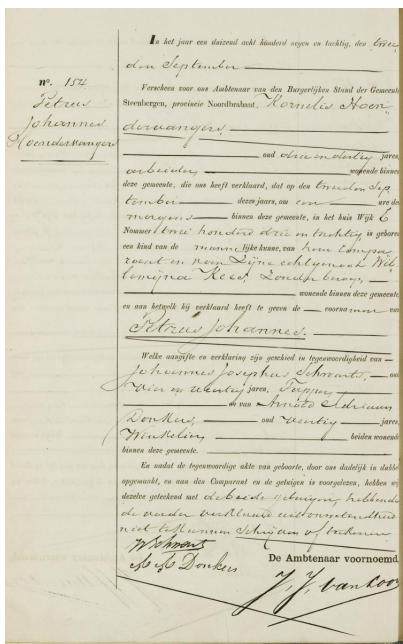 In het jaar een duizend acht honderd negen en tachtig, den twee
den September
n°. 154
Petrus
Johannes
Hoendervangers
Verscheen voor ons Ambtenaar van den Burgerlijken Stand der Gemeente
Steenbergen, provincie Noordbrabant, Kornelis Hoen
dervangers
oud drie en dertig jaren,
arbeider wonende binnen
deze gemeente, die ons heeft verklaard, dat op den tweeden Sep
tember dezes jaars, om een ure des
morgens binnen deze gemeente, in het huis Wijk C
Nommer twee honderd drie en tachtig is geboren
een kind van de mannelijke kunne, van hem Compa
rant en van Zijne echtgenoot Wil
lemijna Kees, Zonder beroep,
wonende binnen deze gemeente
en aan hetwelk hij verklaard heeft te geven de voornamen van
Petrus Johannes.
Welke aangifte en verklaring zijn geschied in tegenwoordigheid van
Johannes Josephus oud
vier en twintig jaren,
en van Arnold Adriaan
Donkers, oud twintig jaren,
beiden wonende
binnen deze gemeente.
En nadat de tegenwoordige akte van geboorte, door ons dadelijk in dubbel
opgemaakt, en aan den Comparant en de getuigen is voorgelezen, hebben wij
dezelve geteekend met de beide getuigen, hebbende
de vader verklaard uit onwetendheid
niet te kunnen schrijven of teekenen
De Ambtenaar voornoemd.
A A Donkers
J. J. van Loon